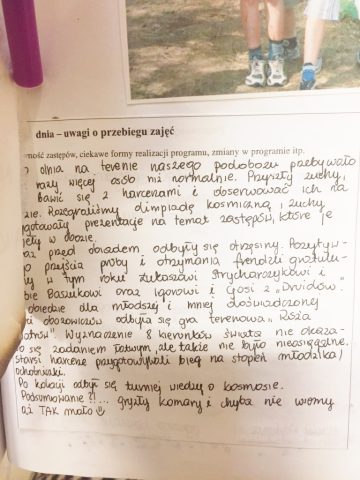 dnia – uwagi o przebiegu zajęć
ność zastępów, ciekawe formy realizacji programu, zmiany w programie itp.
dnia na terenie naszego podobozu przebywało
razy więcej osób niż normalnie. Przyszły zuchy,
bawić się z harcerzami i obserwować ich na
zie. Rozegraliśmy olimpiadę kosmiczną, zuchy
gotowały prezentacje na temat zastępów, które je
w obozie.
przed obiadem odbyły się otrzęsiny. Pozytyw-
przejścia próby i otrzymania frendzli gratulu-
w tym roku Łukaszowi Strycharczykowi i
bie Basiukowi oraz Igorowi i Gosi z "Druidów".
obiedzie dla młodszej i mniej doświadczonej
obozowiczów odbyła się gra terenowa "Róża
". Wyznaczenie 8 kierunków świata nie okaza-
się zadaniem łatwym, ale także nie było nieosiągalne.
Starsi harcerze przygotowywali bieg na stopień młodzika/
ochotniczki.
Po kolacji odbył się turniej wiedzy o kosmosie.
Podsumowanie ?!... gryzły komary i chyba nie wiemy
aż TAK mało